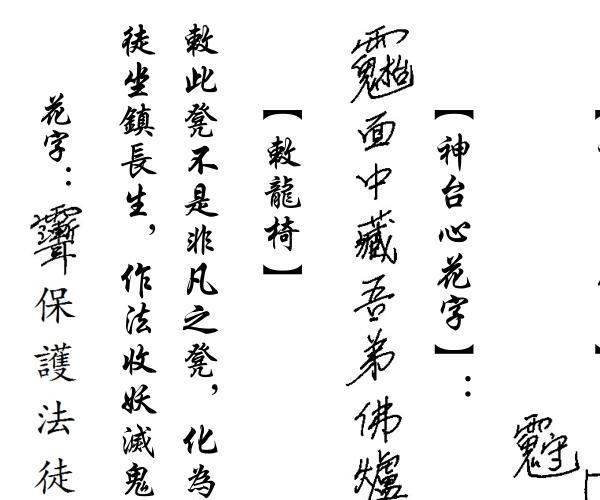 【神台心花字】：
面中藏吾弟佛爐
【敕龍椅】
敕此凳不是非凡之凳，化為
徒坐鎮長生，作法收妖滅鬼
花字：
保護法徒